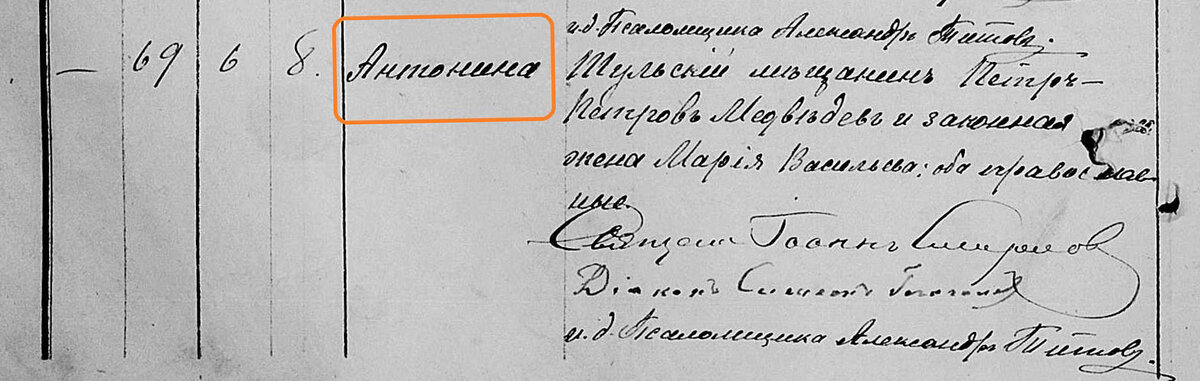 и.д. Псаломщика Александръ Титовъ.
— 69 6 8. Антонина Шульскій мѣщанинъ Петръ
Петровъ Медвѣдевъ и законная
жена Марія Васильева; оба православ-
ные.
Священ Іоаннъ Смирнов
Діаконъ Симеонъ
и.д. Псаломщика Александръ Титовъ.